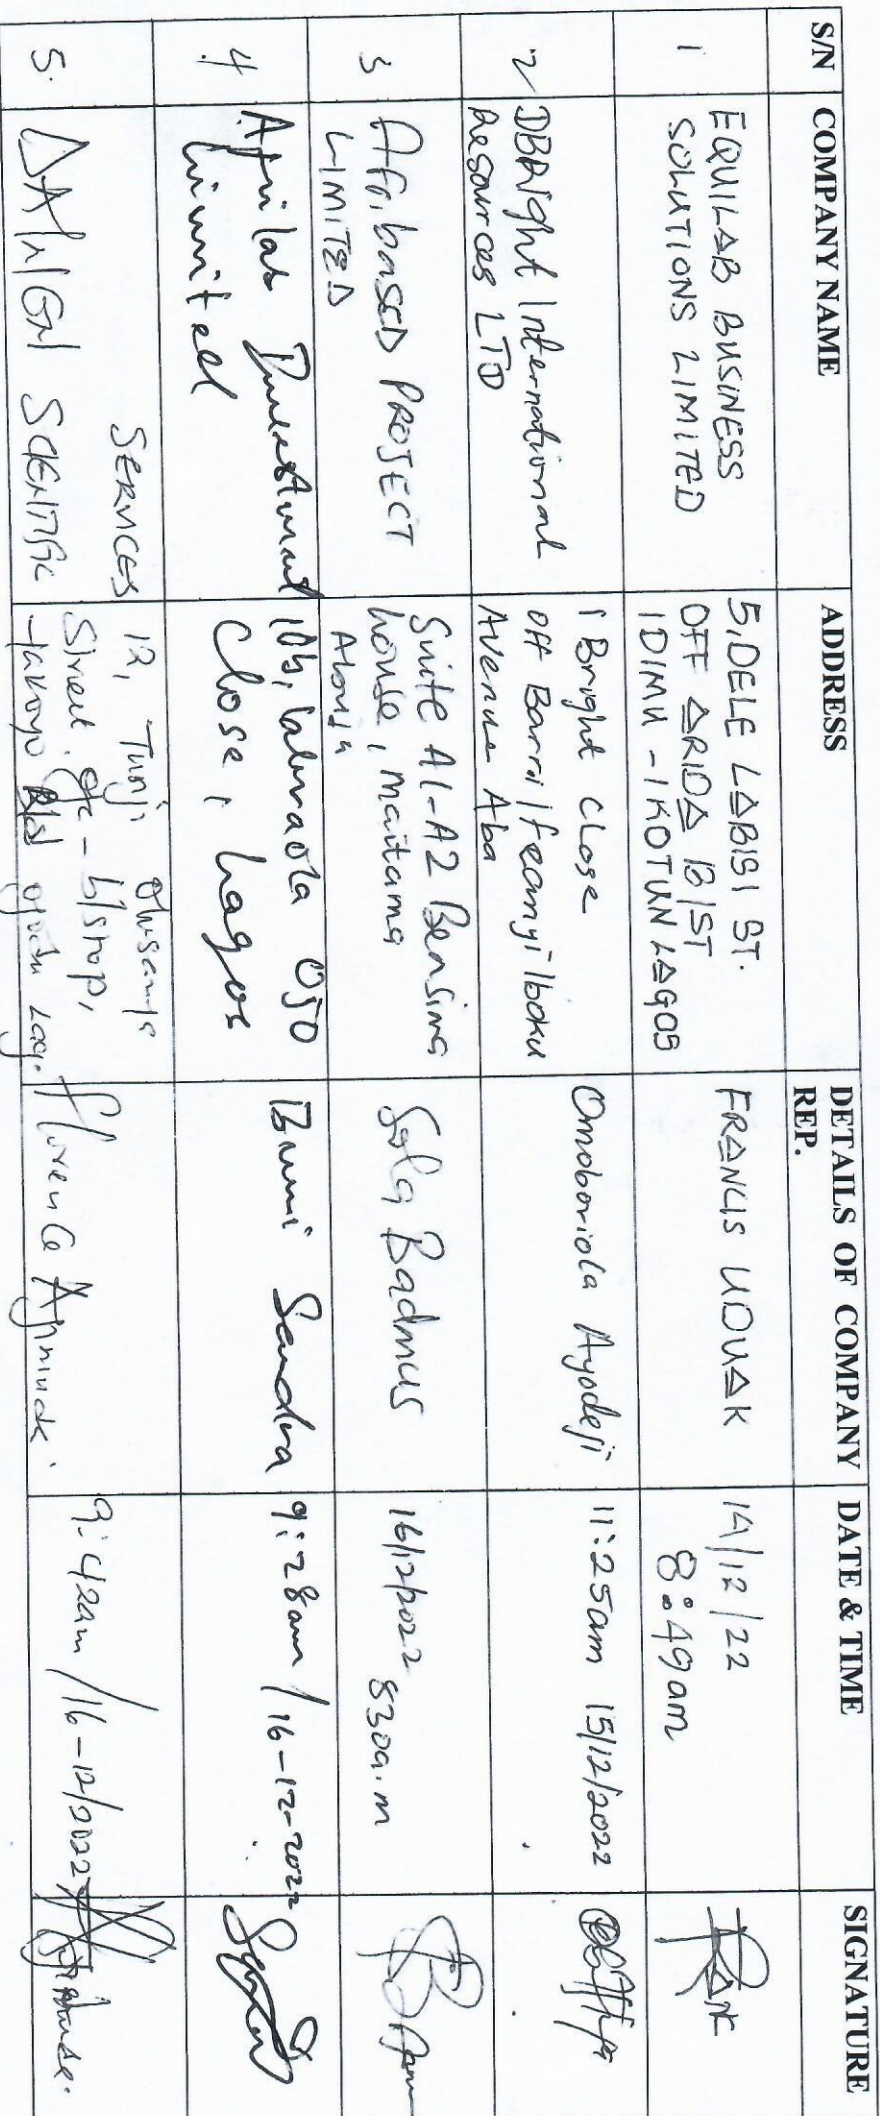 S/N COMPANY NAME ADDRESS DETAILS OF COMPANY REP. DATE & TIME SIGNATURE
1 EQUILAB BUSINESS SOLUTIONS LIMITED 5, DELE LABISI ST. OFF ARIDA B/ST IDIMU - IKOTUN LAGOS FRANCIS UDUAK 14/12/22 8:49am
2 DBRight International Resources LTD 1 Bright Close off Barr. Ifeanyi Iboku Avenue Aba Omoboriola Ayodeji 11:25am 15/12/2022
3 Afribased PROJECT LIMITED Suite A1-A2 Bensima house, maitama Abuja Sola Badmus 16/12/2022 830a.m
4 Afrilab Investment Limited Ojo Close, Lagos Bunmi Sandra 9:28am / 16-12-2022
5. SCIENTIFIC SERVICES 12, Tunji Olusanya Street. B/stop, Lag. Florence 9:42am / 16-12/2022